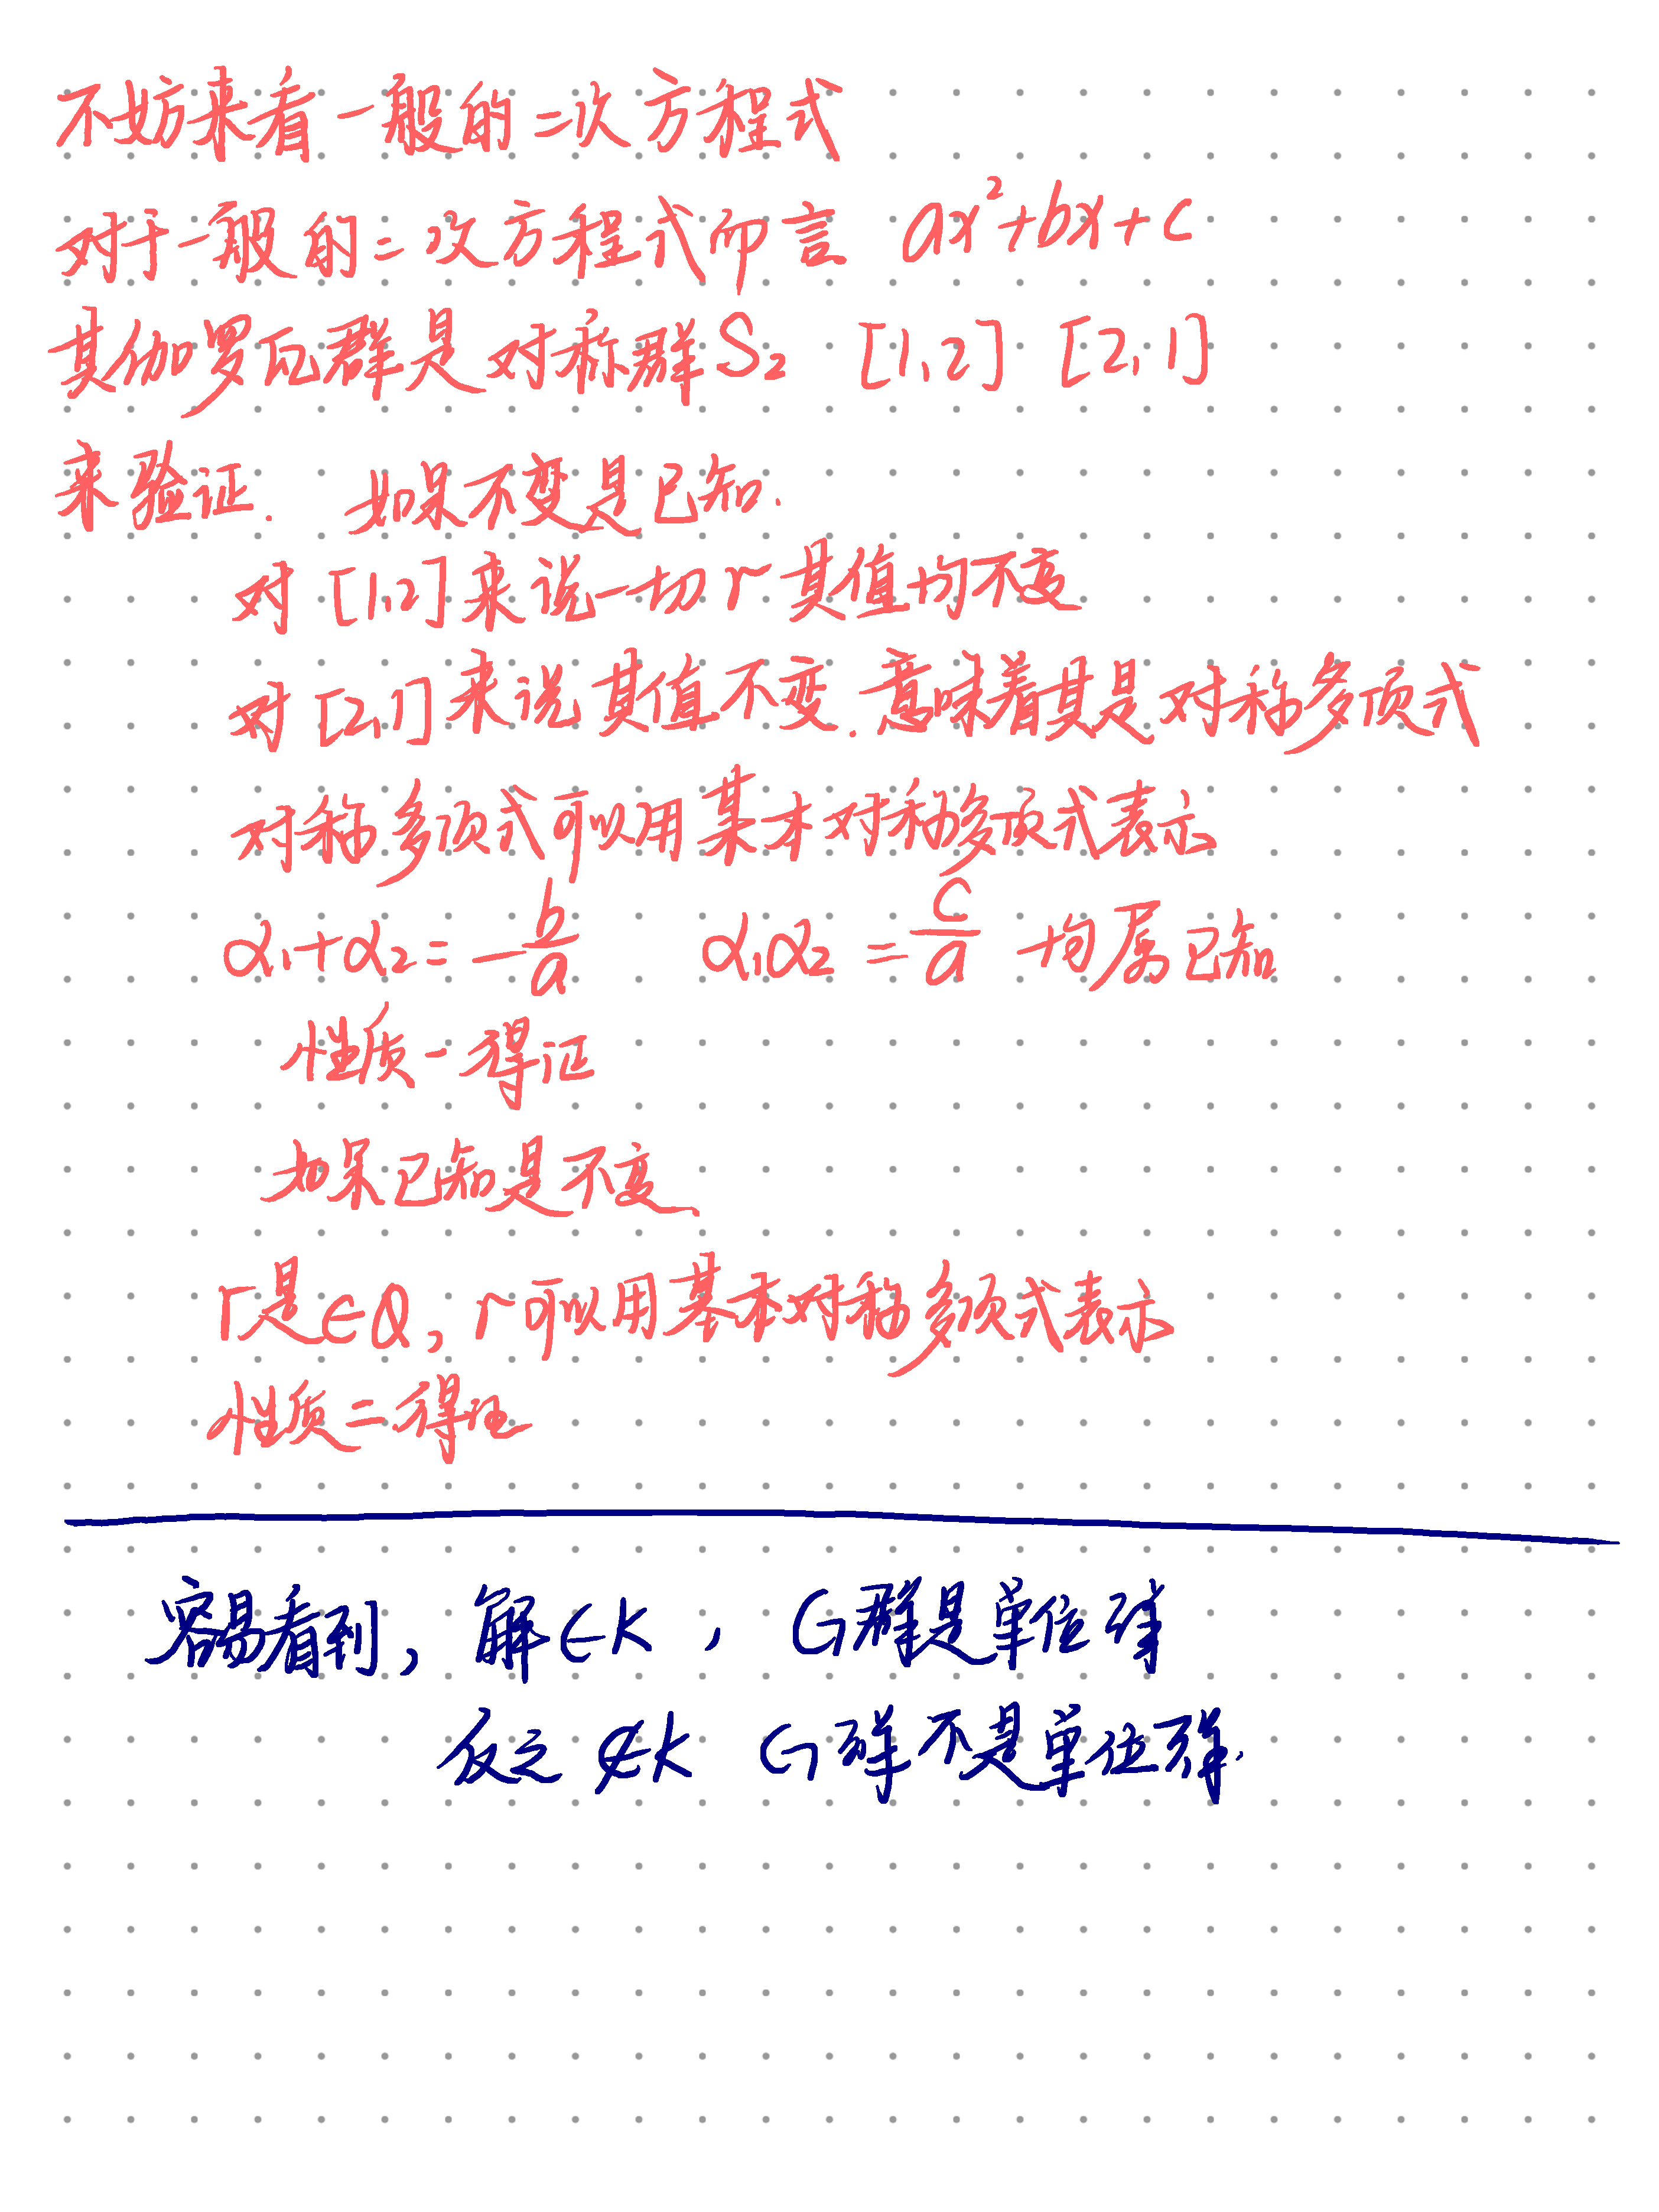 不妨来看一般的二次方程式
对于一般的二次方程式而言 ax²+bx+c
其伽罗瓦群是对称群S₂ [1,2] [2,1]
来验证. 如果不变是已知.
对[1,2]来说一切r其值均不变
对[2,1]来说其值不变.意味着其是对称多项式
对称多项式可以用基本对称多项式表示
α₁+α₂=-b/a α₁α₂=c/a 均属已知
性质一得证
如果已知是不变
r是∈Q, r可以用基本对称多项式表示
性质二得证
容易看到, 解∈K, G群是单位群
反之∉K G群不是单位群.